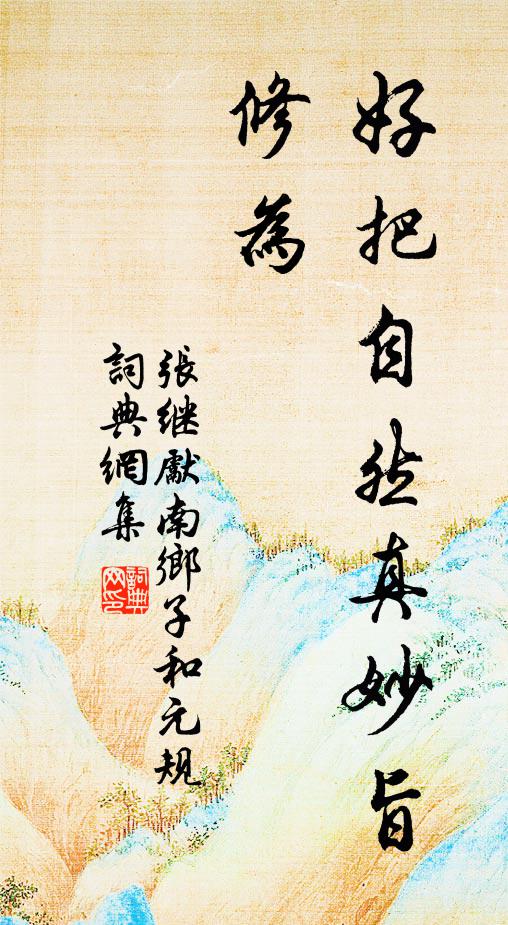 好把自然真妙旨
修為
張继獻南鄉子和元規
詞典網集
詞典
网印